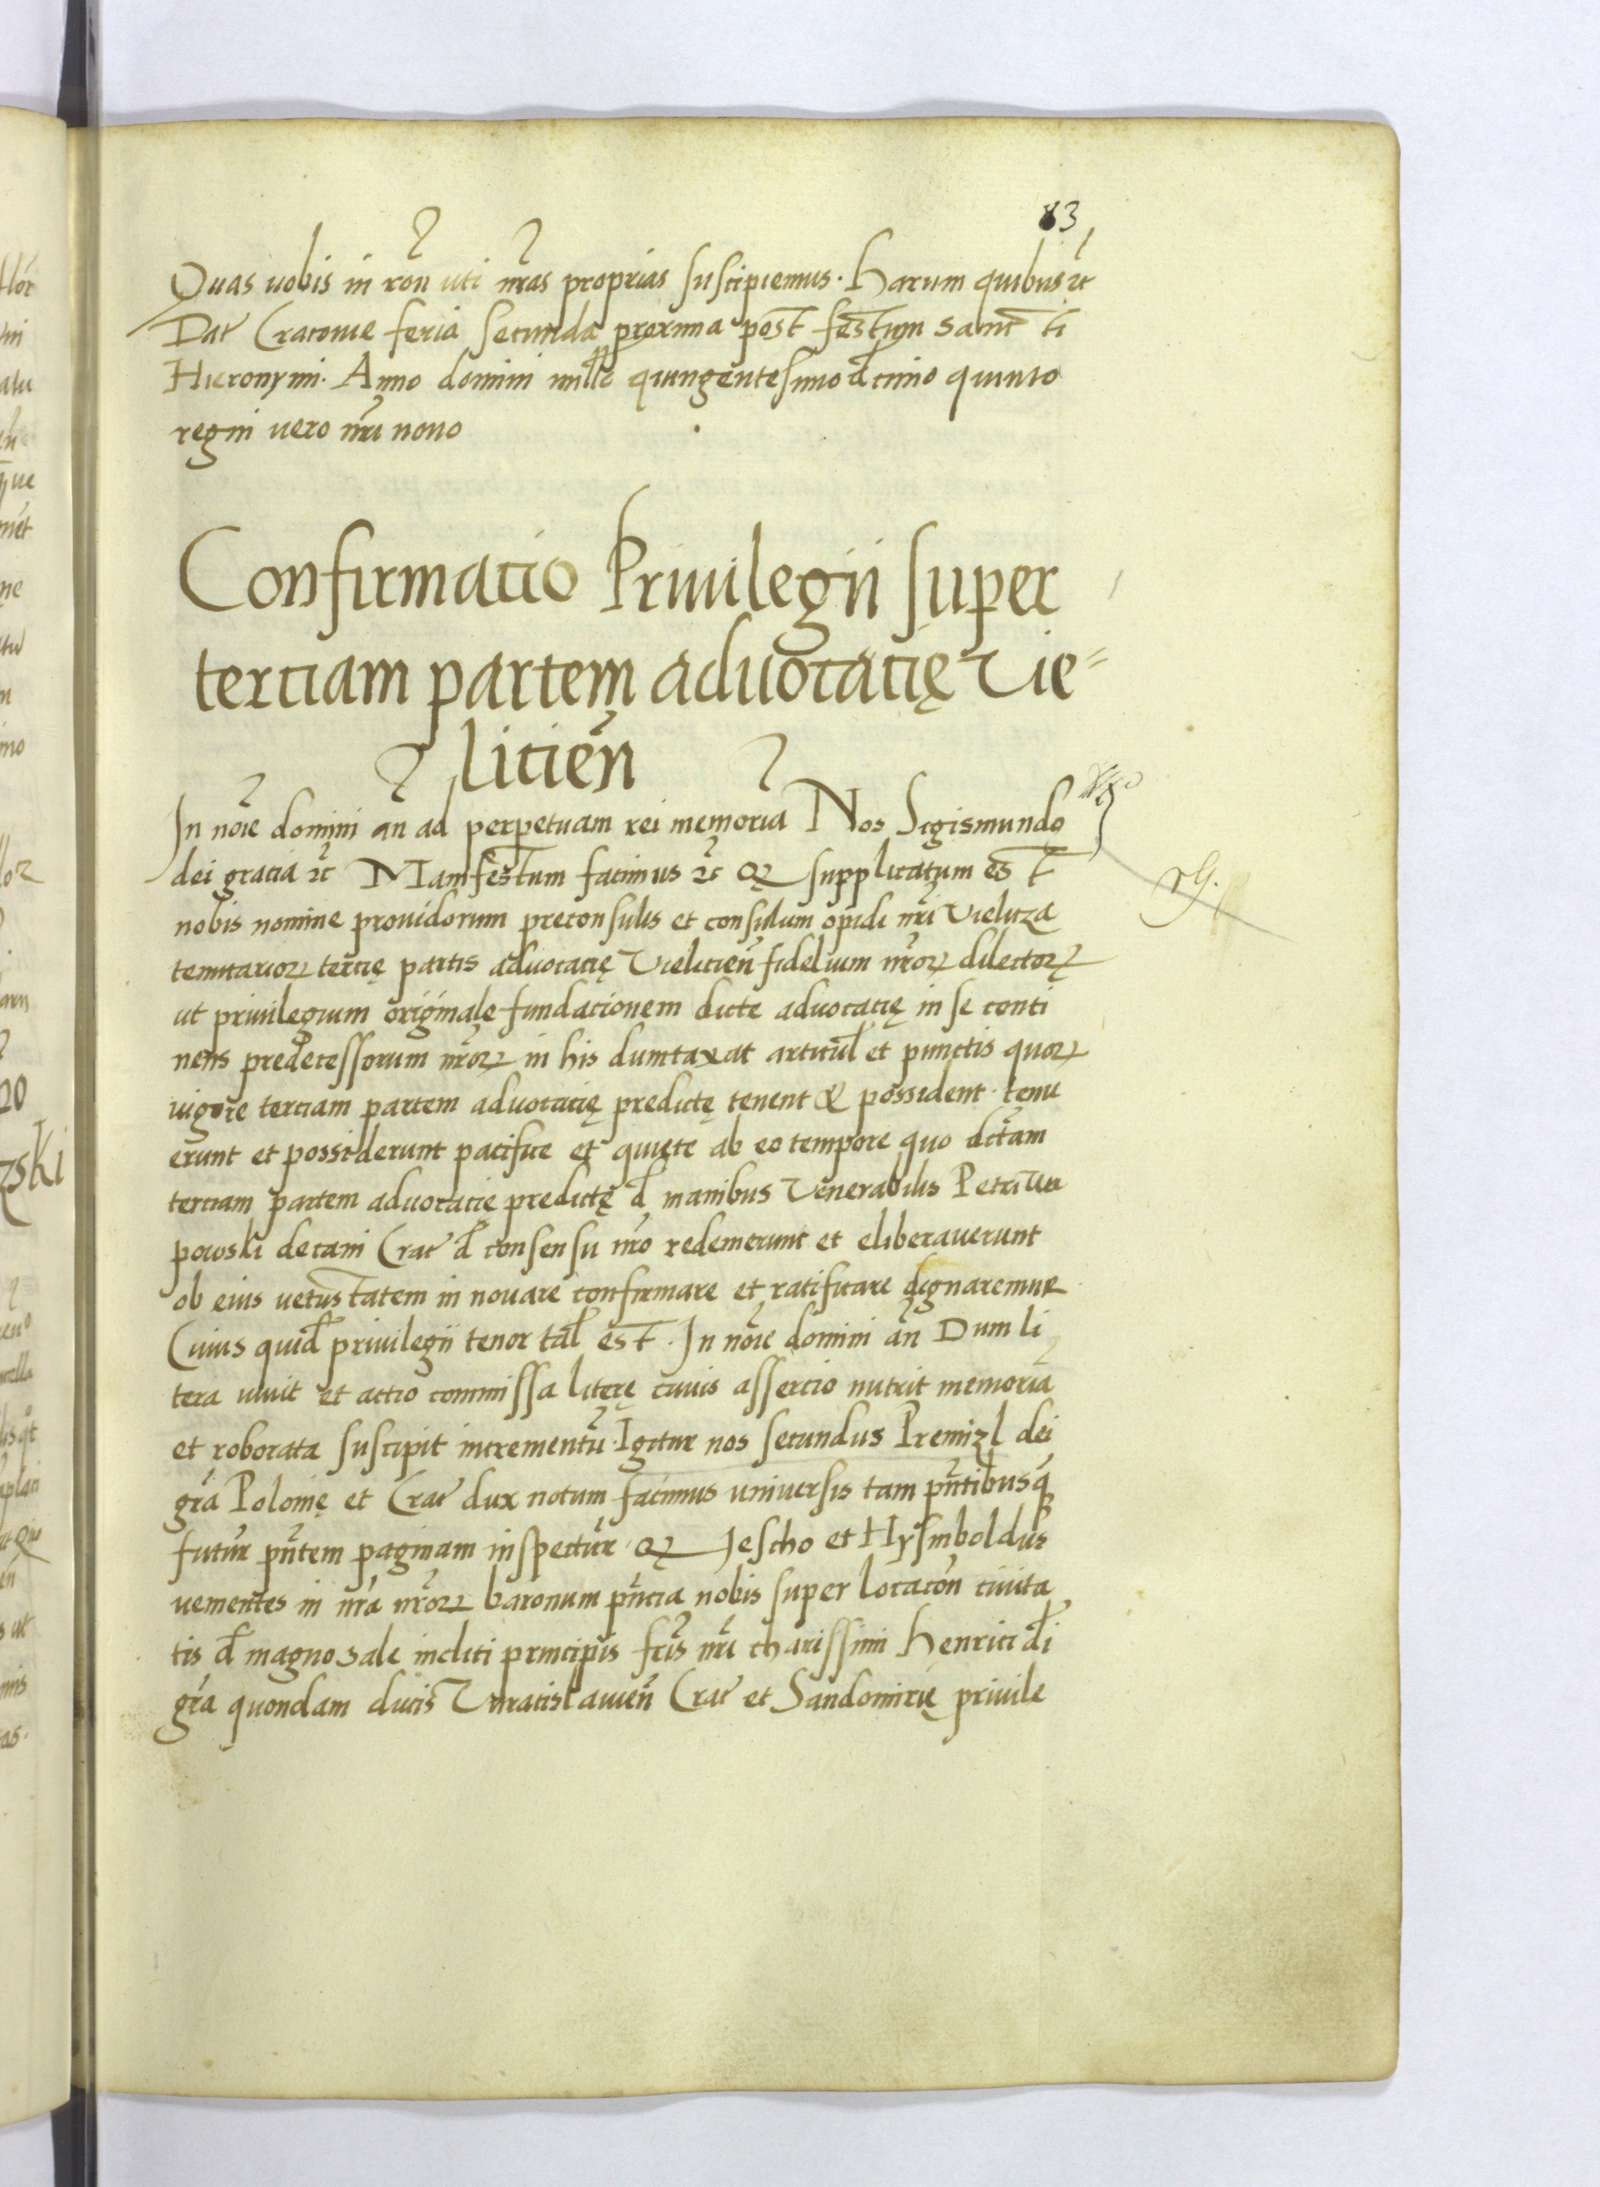 83
Quas uobis in ron̄ uti nr̄as proprias suscipiemus. Harum quibus ꝛc̄
Dat̄ Cracouie feria secunda proxima post festum sancti
Hieronymi. Anno domini mill̄o quingentesimo dcimo quinto
regni uero nr̄i nono
Confirmatio Priuilegii super
terciam partem aduocacię Vie=
licień
In noīe domini an̄ ad perpetuam rei memoria Nos Sigismundꝯ
dei gracia ꝛc̄ Manifestum facimus ꝛc̄ Qꝫ supplicatum est
nobis nomine prouidorum preconsulis et consulum opidi nr̄i Vieliza
tenutarioꝝ tercię partis aduocacię Vielicień fidelium nr̄oꝝ dilectoꝝ
ut priuilegium originale fundacionem dicte aduocacię in se conti
nens predecessorum nr̄oꝝ in his dumtaxat articul̄ et punctis quoꝝ
uigore terciam partem aduocacię predictę tenent & possident. tenu
erunt et possiderunt pacifice et quiete ab eo tempore quo dc̄tam
terciam partem aduocacie predictę đ manibus Venerabilis Petri Va
powski decani Crac̄ đ consensu nr̄o redemerunt et eliberauerunt
ob eius vetustatem in nouare confirmare et ratificare dignaremur
Cuius quiđ priuilegii tenor tal̄ est. In noīe domini an̄ Dum li
tera uiuit et actio commissa literę cuius assercio nutrit memoriā
et roborata suscipit incrementū. Igitur nos secundus Premizl dei
gr̄a Polonię et Crac̄ dux notum facimus uniuersis tam pn̄tibusq̄
futur̄ pn̄tem paginam inspectur̄ Qꝫ Jescho et Hysinboldus
uementes in nr̄a nr̄oꝝ baronum pn̄cia nobis super locacōn ciuita
tis đ magno sale incliti principis fr̄is nr̄i charissimi Henrici đi
gr̄a quondam ducis Vuratislauień Crac̄ et Sandomirię priuile